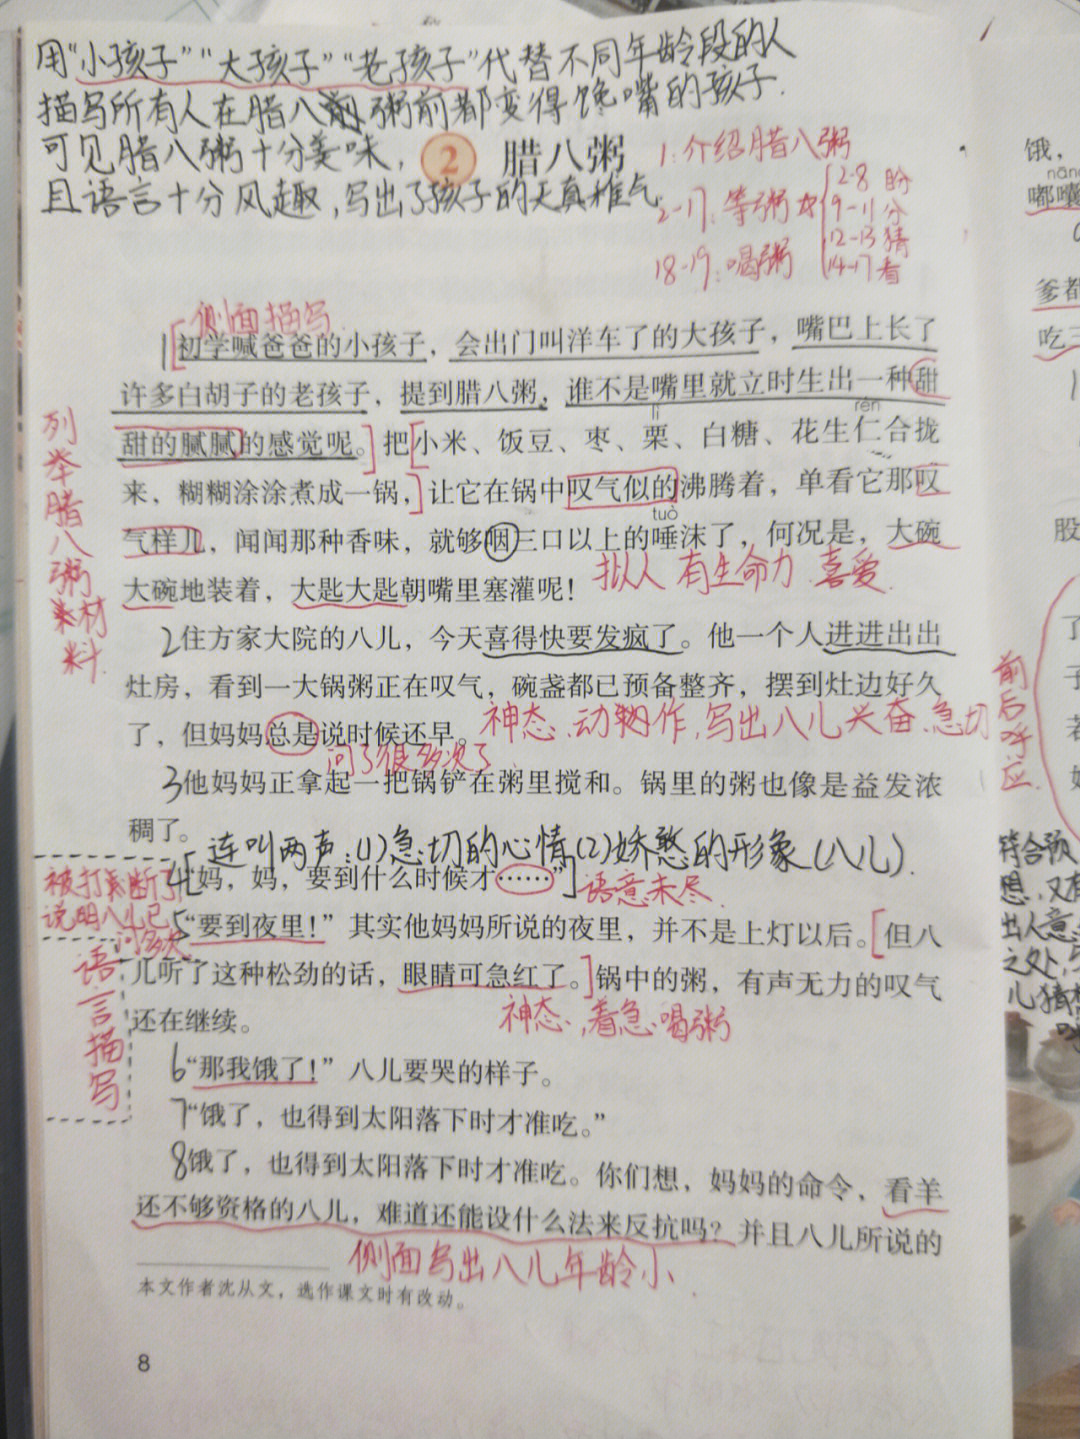 用“小孩子”“大孩子”“老孩子”代替不同年龄段的人
描写所有人在腊八粥前都变得馋嘴的孩子.
可见腊八粥十分美味,
且语言十分风趣,写出了孩子的天真稚气
2 腊八粥
1:介绍腊八粥
2-17:等粥
2-8 盼
9-11 分
12-13 猜
14-17 看
18-19:喝粥
侧面描写
1初学喊爸爸的小孩子，会出门叫洋车了的大孩子，嘴巴上长了
许多白胡子的老孩子，提到腊八粥，谁不是嘴里就立时生出一种甜
lì
rén
甜的腻腻的感觉呢。把小米、饭豆、枣、栗、白糖、花生仁合拢
来，糊糊涂涂煮成一锅，让它在锅中叹气似的沸腾着，单看它那叹
tuò
气样儿，闻闻那种香味，就够咽三口以上的唾沫了，何况是，大碗
大碗地装着，大匙大匙朝嘴里塞灌呢！
拟人 有生命力 喜爱.
列举腊八粥材料
2住方家大院的八儿，今天喜得快要发疯了。他一个人进进出出
灶房，看到一大锅粥正在叹气，碗盏都已预备整齐，摆到灶边好久
了，但妈妈总是说时候还早。
神态、动作,写出八儿兴奋、急切
问了很多次了
前后呼应
3他妈妈正拿起一把锅铲在粥里搅和。锅里的粥也像是益发浓
稠了。
连叫两声:(1)急切的心情(2)娇憨的形象(八儿).
4“妈，妈，要到什么时候才……”
语意未尽.
被打断了
说明八儿已
问多次
5“要到夜里！”其实他妈妈所说的夜里，并不是上灯以后。但八
儿听了这种松劲的话，眼睛可急红了。锅中的粥，有声无力的叹气
还在继续。
神态,着急喝粥
语言描写
6“那我饿了！”八儿要哭的样子。
7“饿了，也得到太阳落下时才准吃。”
8饿了，也得到太阳落下时才准吃。你们想，妈妈的命令，看羊
还不够资格的八儿，难道还能设什么法来反抗吗？并且八儿所说的
侧面写出八儿年龄小.
本文作者沈从文，选作课文时有改动。
8
饿，
nāng
嘟囔
爹都
吃三
股
了
子
若
符合预
想,又有
出人意
之处,
儿猜